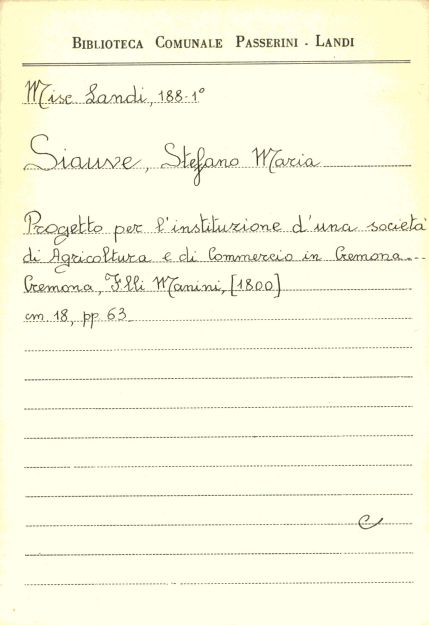 BIBLIOTECA COMUNALE PASSERINI - LANDI
Misc Landi, 188-1°
Siauve, Stefano Maria
Progetto per l'instituzione d'una società
di Agricoltura e di Commercio in Cremona...
Cremona, F.lli Manini, [1800]
cm. 18, pp 63
C